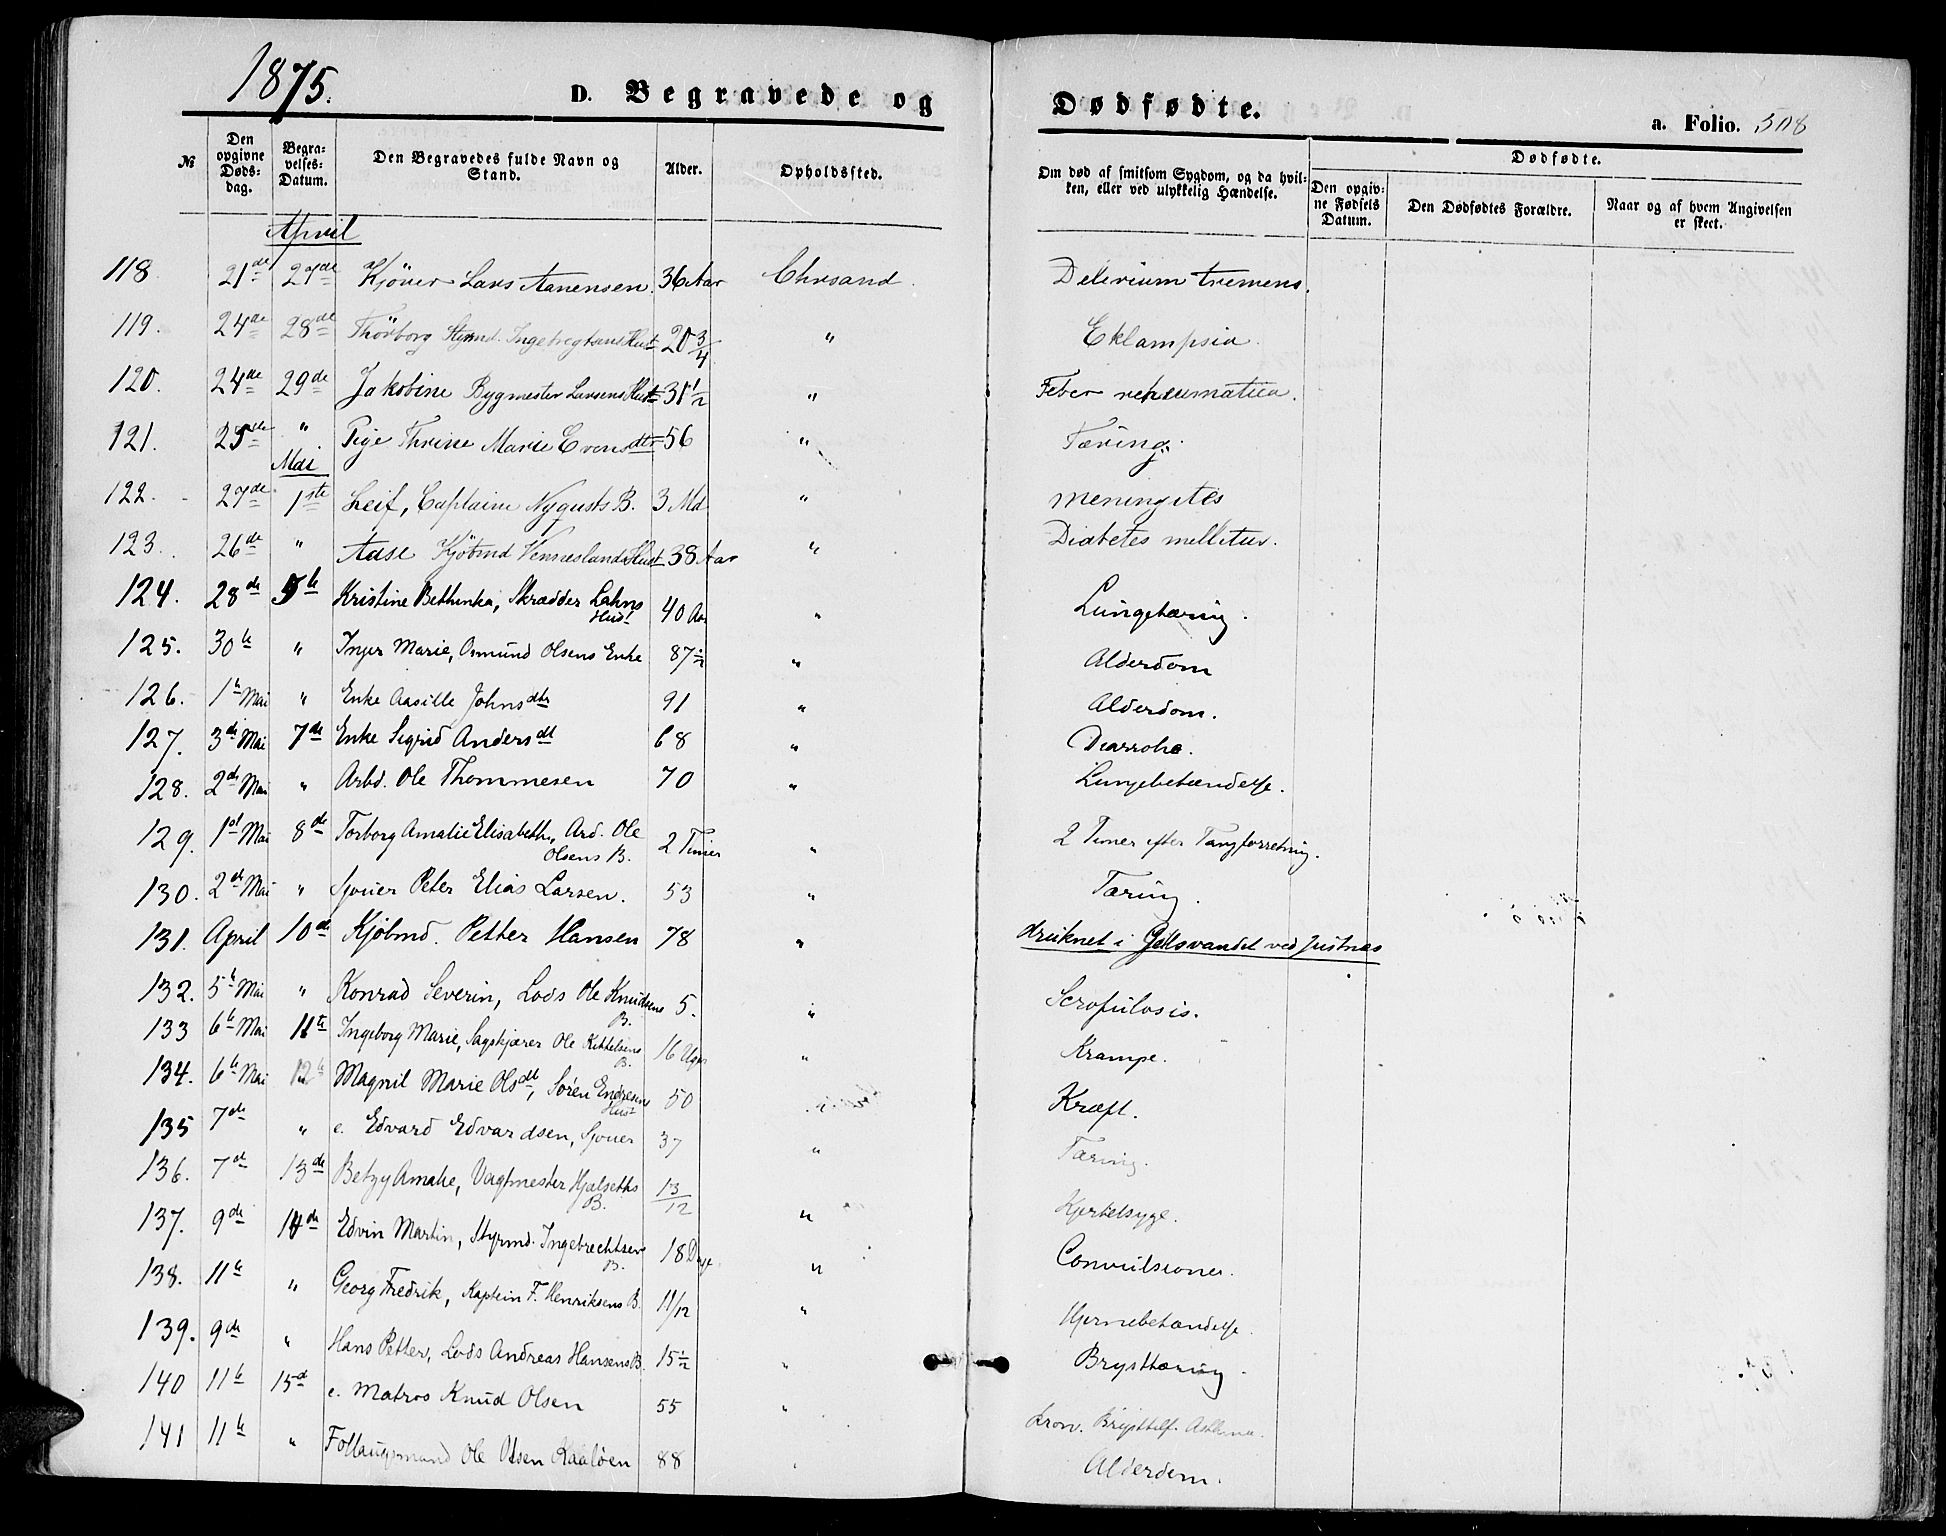 1875.
D. Begravede og Dødfødte.
a. Folio. 308
№ | Den opgivne Dødsdag. | Begravelses-Datum. | Den Begravedes fulde Navn og Stand. | Alder. | Opholdssted. | Om død af smitsom Sygdom, og da hvilken, eller ved ulykkelig Hændelse. | Dødfødte. | Den opgivne Fødsels Datum. | Den Dødfødtes Forældre. | Naar og af hvem Angivelsen er skeet.
April
118 21de 27de Lars Aanensen 36 Aar Chrsand. Delirium tremens.
119. 24de 28de Thorborg Styrmd. Ingebregtsens Hust 20 3/4 " Eklampsia.
120. 24de 29de Jakobine Bygmester Larsens Hust 31 1/2 " Feber reheumatica.
121. 25de " Pige Thrine Marie Evensdtr 56 " Tæring.
Mai
122. 27de 1ste Leif, Captaine Nyqusts B. 3 Md " Meningites
123. 26de " Aase Kjøbmd Vennesland Hust 38 Aar " Diabetes mellitus.
124. 28de 5te Kristine Bethinka, Skrædder Lahns Hust 40 Aar " Lungetæring.
125. 30te " Inger Marie, Osmund Olsens Enke 87 1/2 " Alderdom
126. 1te Mai " Enke Aasille Johnsdtr 91 " Alderdom.
127. 3de Mai 7de Enke Sigrid Andersdt 68 " Diarrohe.
128. 2de Mai " Arbd. Ole Thommesen 70 " Lungebetændelse.
129. 1ste Mai 8de Torborg Amalie Elisabeth, Ard. Ole Olsens B. 2 Timer " 2 Timer efter Tangforretning.
130. 2de Mai " Sjouer Peter Elias Larsen. 53 " Tæring.
131. April 10de Kjøbmd. Petter Hansen 78 " druknet i Gillsvandet ved Justnes
132. 5te Mai " Konrad Severin, Lods Ole Knudsens B. 5. " Scrofulosis.
133 6te Mai 11te Ingeborg Marie, Sagskjærer Ole Kittelsens B. 16 Uger " Krampe.
134. 6te Mai 12te Magnil Marie Olsdt, Søren Endresens Hust 50 Kræft.
135 7de " e. Edvard Edvardsen, Sjouer 37 " Tæring.
136. 7de 13de Betzy Amalie, Vagtmester Hjelseths B. 13/12 " Kjertelsyge.
137. 9de 14de Edvin Martin, Styrmd. Ingebrechtsens B. 18 Dage " Convulsioner.
138. 11te " Georg Fredrik, Kaptein F. Henriksens B. 11/12 " Hjernebetændelse.
139. 9de " Hans Petter, Lods Andreas Hansens B. 15 1/2 " Brysttæring.
140 11te 15de e. Matros Knud Olsen 55 " kron. Asthma.
141 11te " Ole Olsen Kaaløen 88 Alderdom.